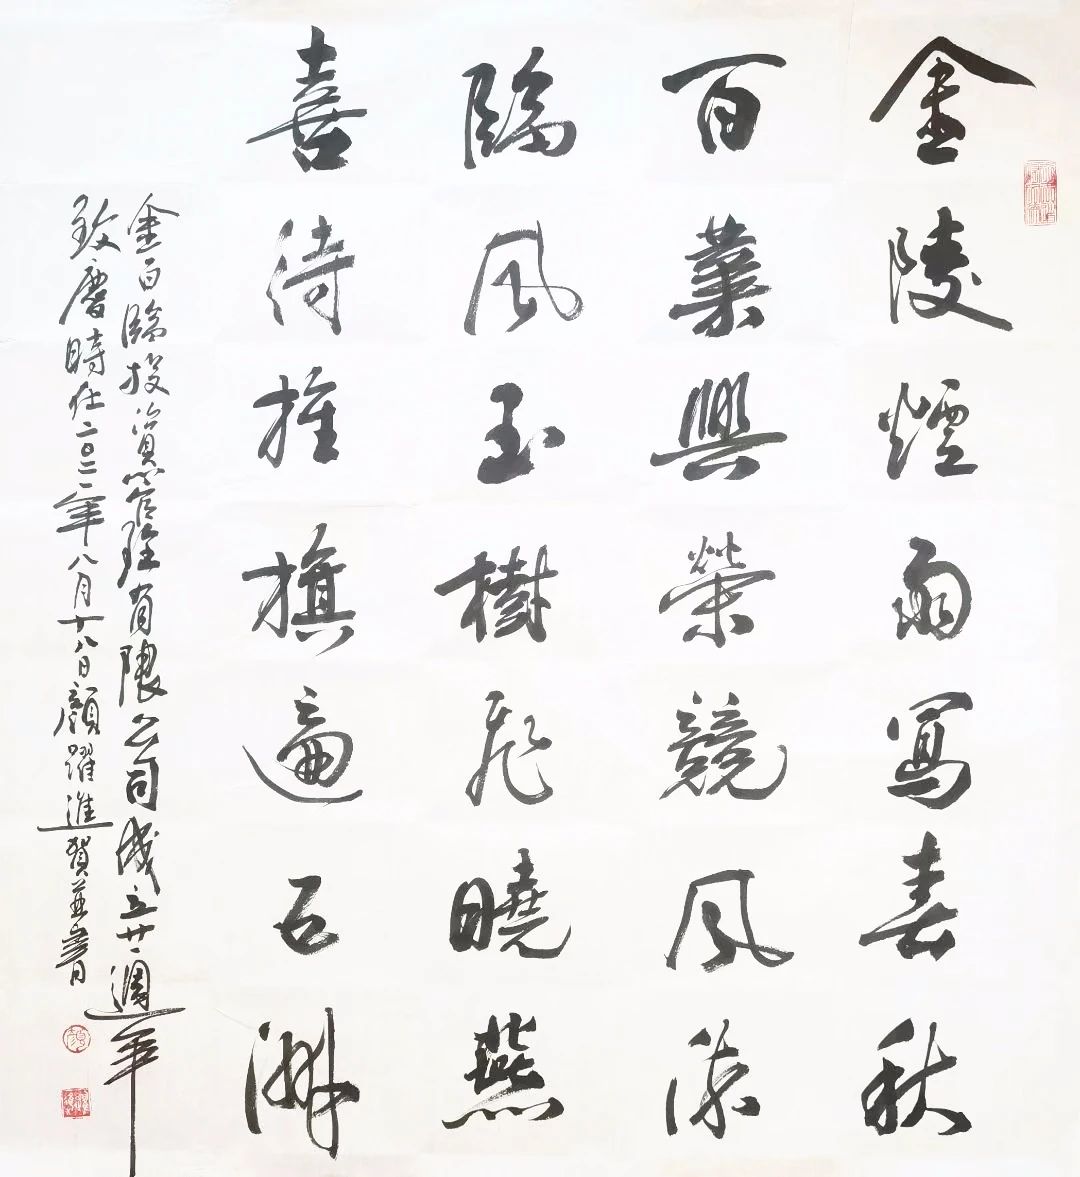 金陵煙雨寫春秋
百業興榮競風流
臨風玉樹飛曉燕
喜待旌旗遍五洲
金百臨投資管理有限公司成立廿週年
致慶時在二〇二一年八月十八日顏躍進賀並書